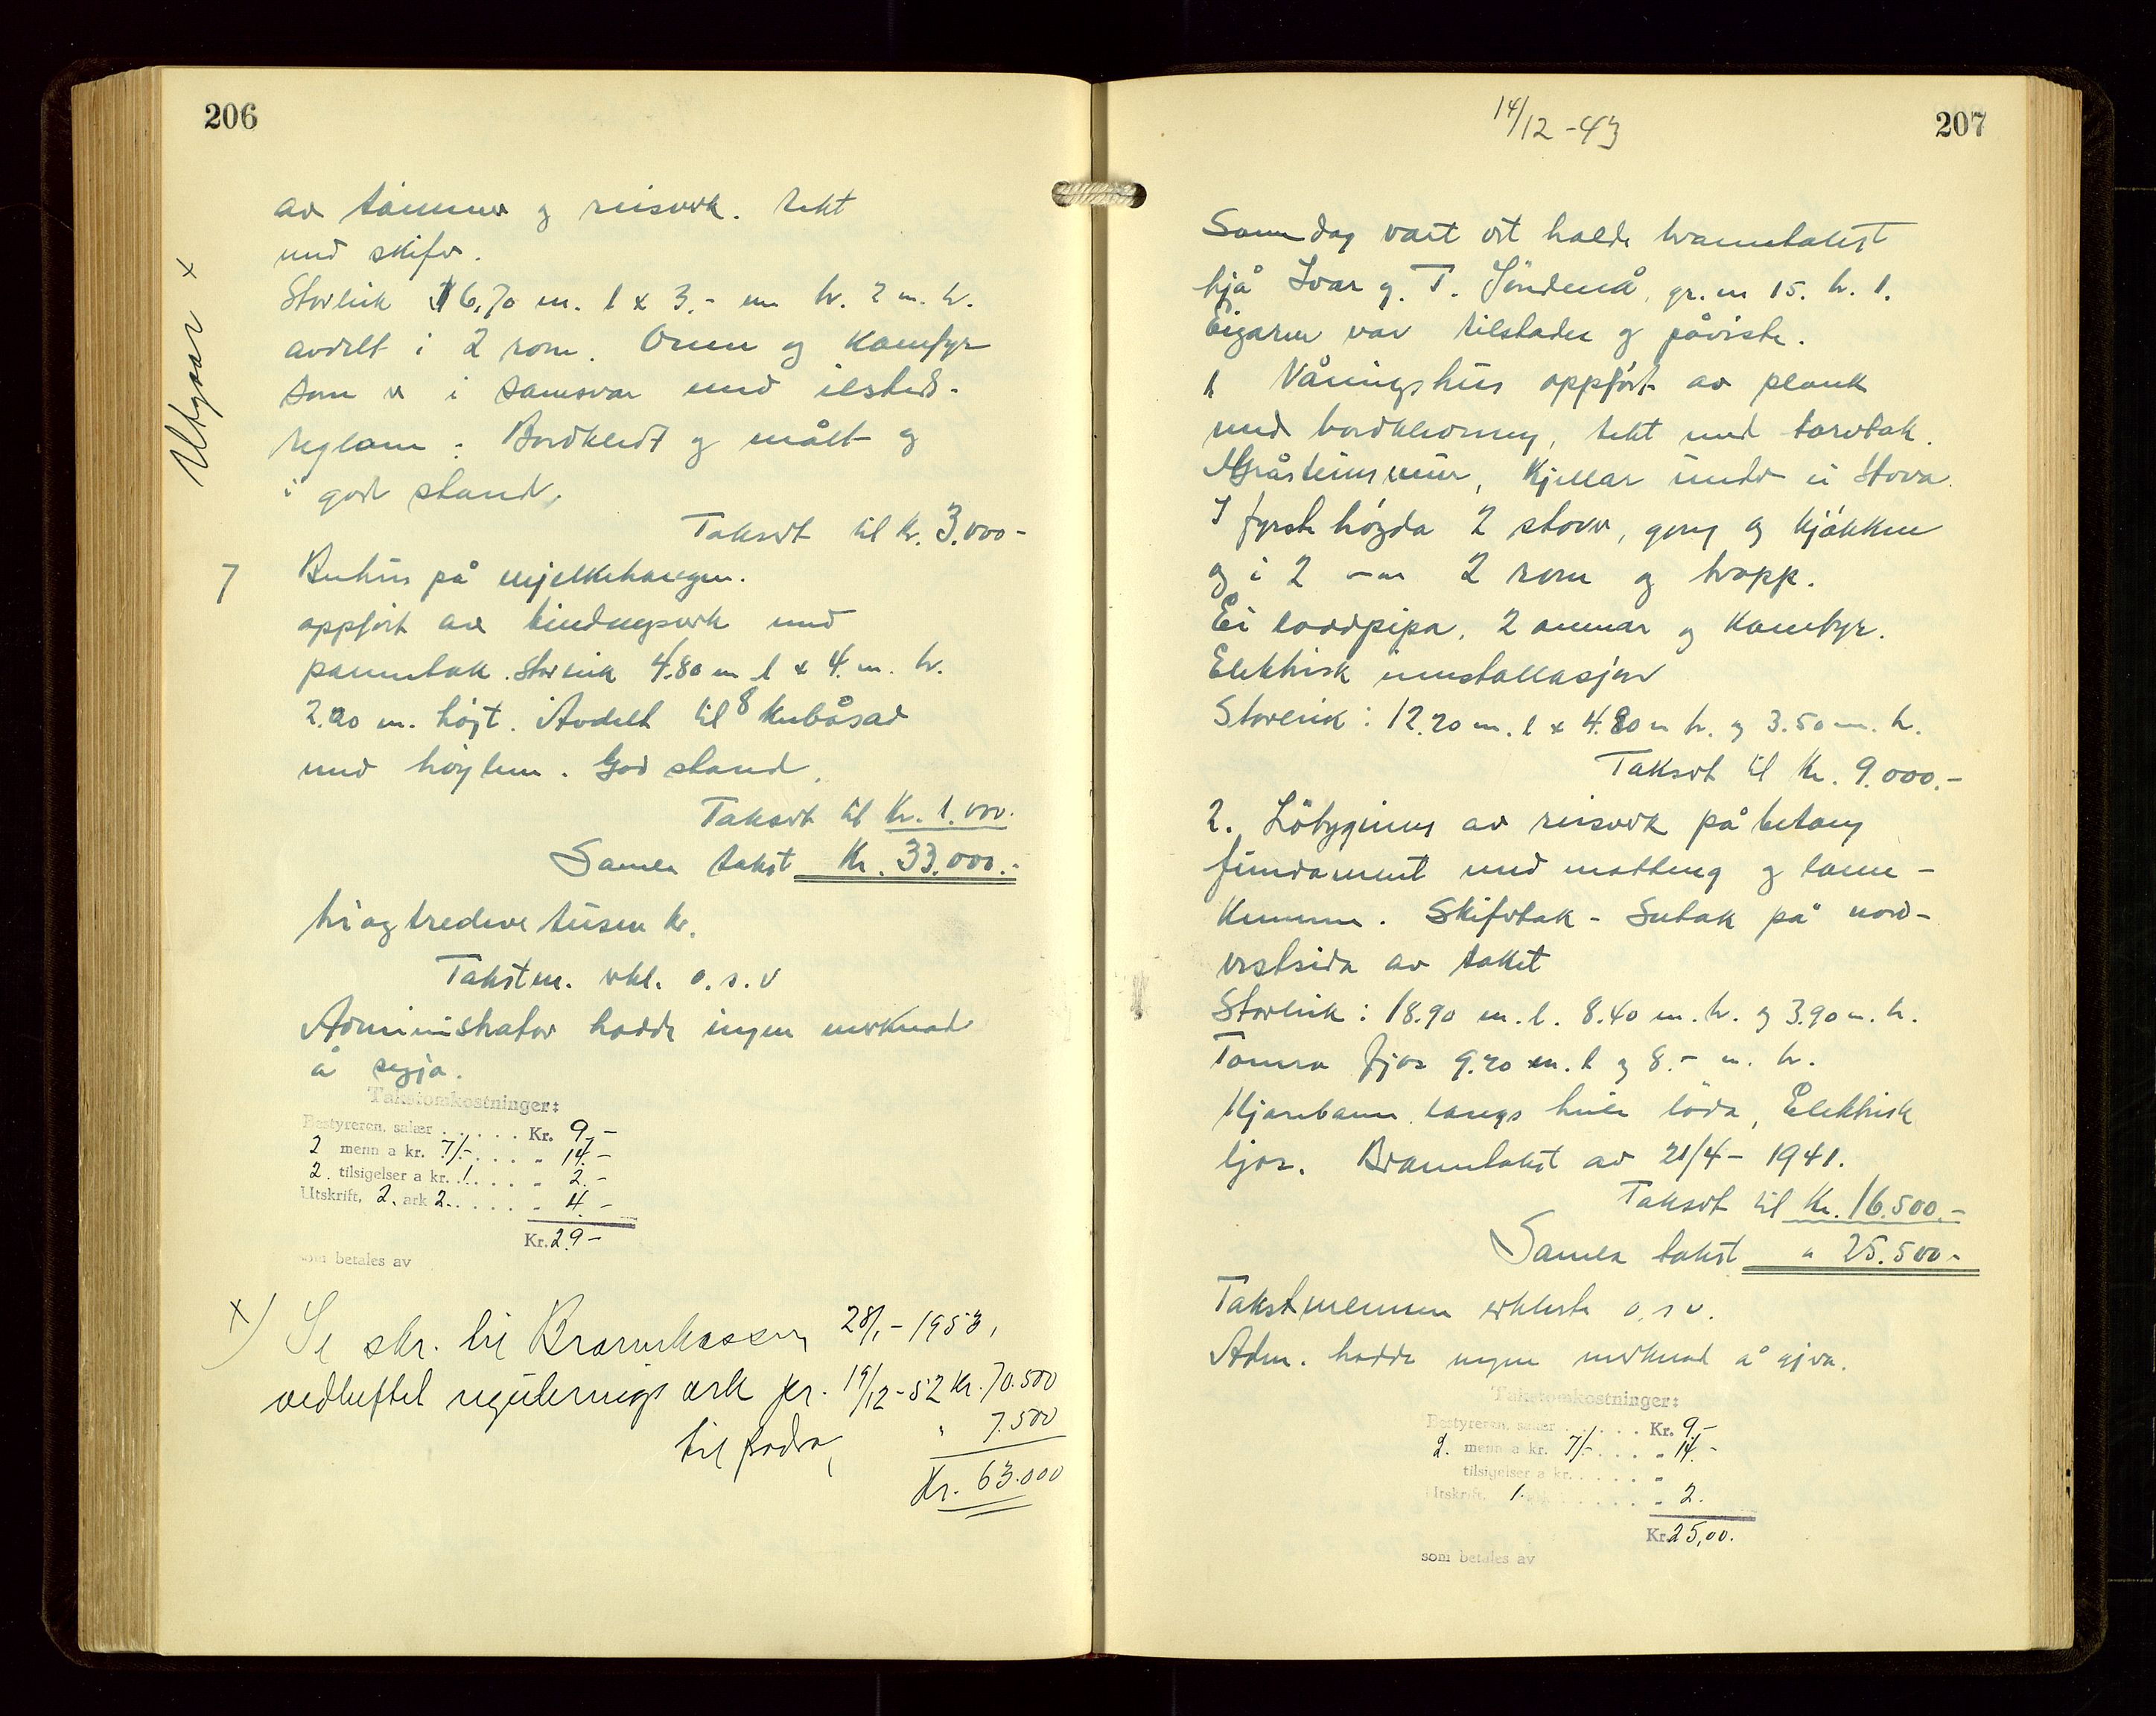 206
Utgår x
av tømmer og reisverk. tekt
med skifer.
Storleik 6,70 m. l x 3.- m br. 2 m. h.
avdelt i 2 rom. Omn og Komfyr
som er i samsvar med ilsteds-
reglane. Bordkledt og målt og
i god stand.
Taksert til kr. 3.000-
7 Buhus på mjelkehaugen.
oppført av bindingsverk med
pannetak. Storleik 4.80 m l x 4. m. br.
2.20 m. høgt. Avdelt til 8 kubåsar
med høylem. God stand.
Taksert til Kr. 1.000.
Samla takst Kr. 33.000.-
tri og tredeve tusen kr.
Takstm. erkl. o.s.v
Administrator hadde ingen merknad
å segja.
Takstomkostninger:
Bestyreren, salær . . . . . Kr. 9,-
2 menn a kr. 7/- . . . . " 14.-
2. tilsigelser a kr. 1. . . . . " 2.-
Utskrift, 2. ark 2. . . . . " 4.-
Kr. 29-
som betales av
x) Se skr. til Brannkassen 28/1-1953,
vedheftet regulerings ark pr. 19/12-52 Kr. 70.500
til fradra " 7.500
Kr. 63.000
14/12-43
207
Same dag vart det halde branntakst
hjå Ivar g. T. gr. nr 15. br. 1.
Eigaren var tilstades og påviste.
1 Våningshus oppført av plank
med bordkledning, tekt med torvtak.
Gråsteinsmur, Kjellar under ei stova.
I fyrste høgda 2 stover, gang og kjøkken
og i 2 -"- 2 rom og trapp.
Ei loddpipa, 2 omnar og Komfyr.
Elektrisk innstallasjon
Storleik: 12.20 m. l x 4.80 m br. og 3.50 m. h.
Taksert til Kr. 9.000.-
2. Løbygning av reisverk på betong
fundament med møtting og land-
kumme. Skifertak - Sutak på nord-
vestsida av taket
Storleik: 18.90 m. l. 8.40 m. br. og 3.90 m. h.
Tomra fjos 9.20 m. l og 8.- m. br.
langs heile løda, Elektrisk
ljos. Branntakst av 21/4-1941.
Taksert til Kr. 16.500.-
Samla takst " 25.500-
Takstmennene erklerte o.s.v.
Adm. hadde ingen merknad å gjera.
Takstomkostninger:
Bestyreren, salær . . . . . Kr. 9,-
2. menn a kr. 7/- . . . . " 14.-
tilsigelser a kr. . . . . . "
Utskrift, 1. . . . . . " 2.
Kr. 25,00.
som betales av